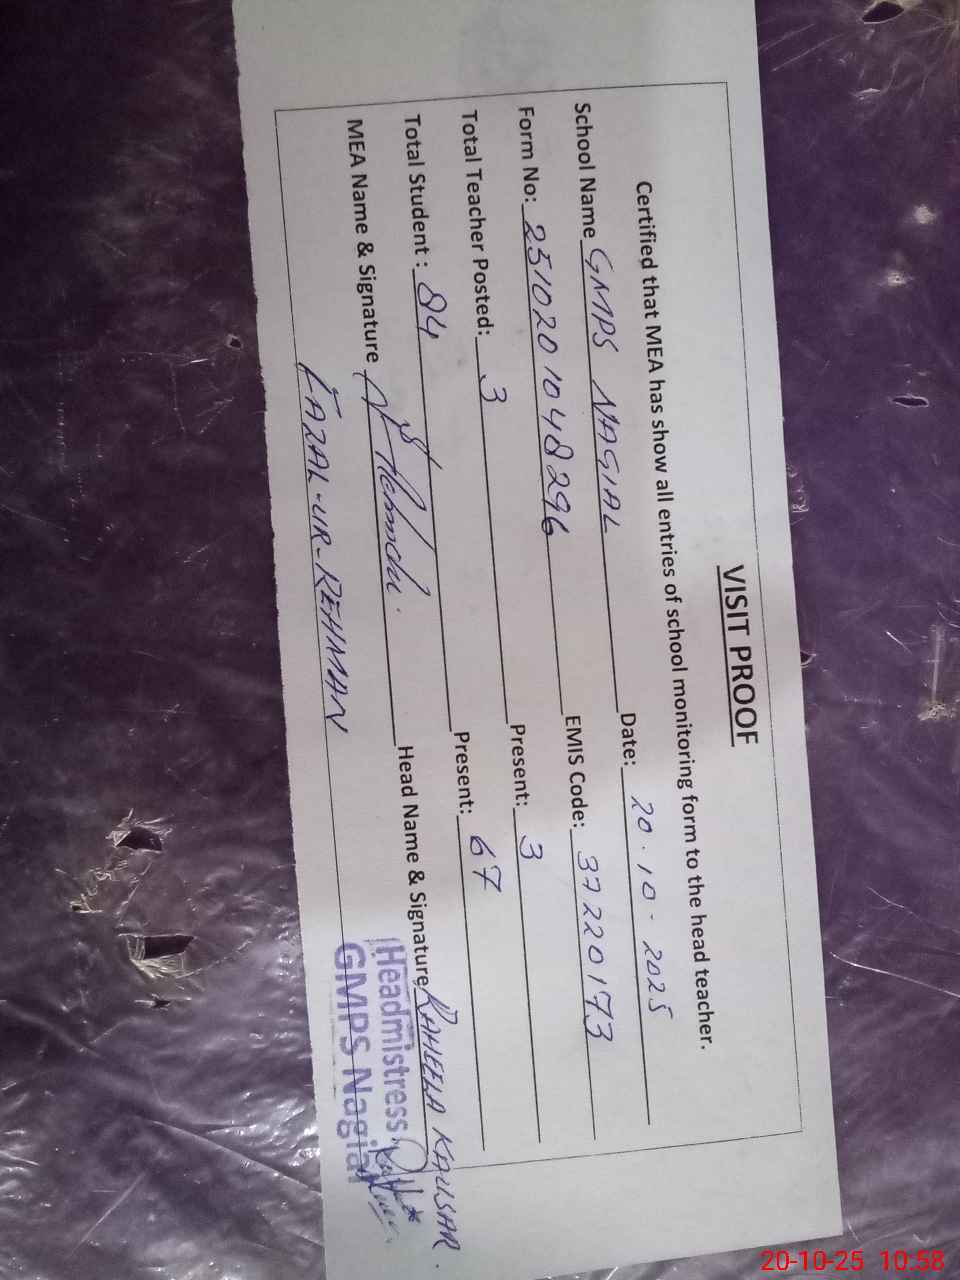 VISIT PROOF
Certified that MEA has show all entries of school monitoring form to the head teacher.
School Name GMPS NAGIAL Date: 20.10-2025
Form No: 2510201048296 EMIS Code: 37220173
Total Teacher Posted: 3 Present: 3
Total Student : 84 Present: 67
MEA Name & Signature Head Name & Signature RAHEELA KAUSAR
FAZAL-UR-REHMAN
Headmistress
GMPS Nagial
20-10-25 10:58